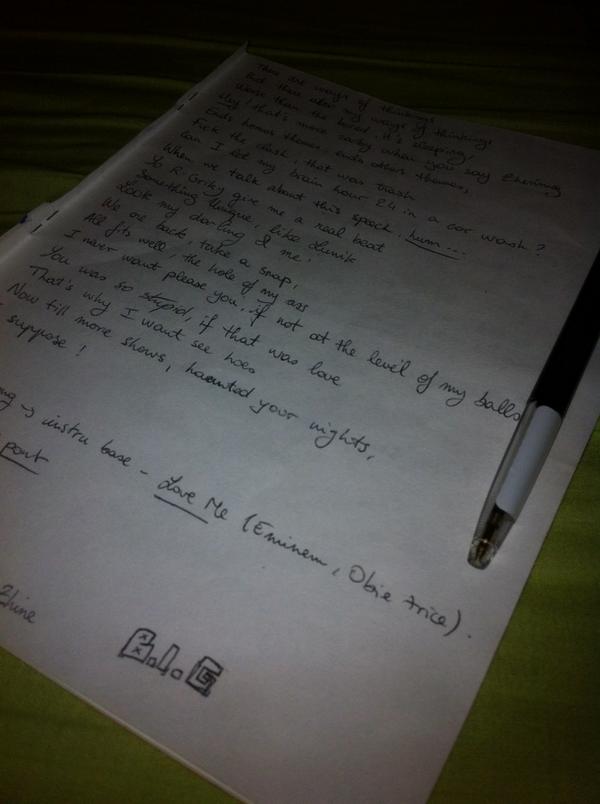 There are ways of thinkings
And then when my ways of thinkings
Worse than the bored, it's sleeping,
Hey! that's more catchy when you say
Ends homos themes, ends others themes,
Fuck the clash, that was trash
Can I let my brain hour 24 in a car wash?
When we talk about this speech, hum....
Yo R. Griky give me a real beat
Something Unique, like
Look my darling & me!
We are back, take a snap,
All fits well, the hole of my ass
I never want please you, if not at the level of my balls
You was so stupid, if that was love
That's why I want see hoes
Now till more shows, haunted your nights,
suppose!
instru base - Love Me (Eminem, Obie trice).
pont
B.I.G